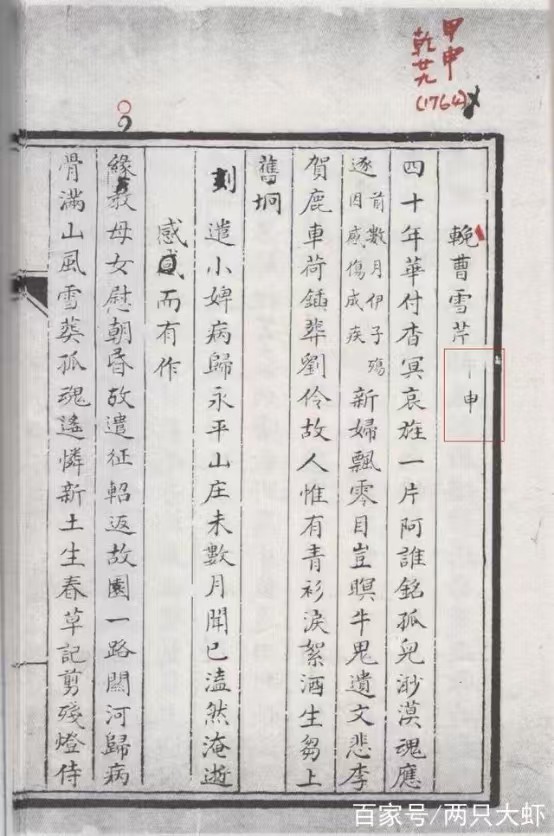 甲申
乾廿九
(1764)
輓曹雪芹 申
四十年華付杳冥哀旌一片阿誰銘孤兒渺漠魂應
逐前數月伊子殤因感傷成疾新婦飄零目豈暝牛鬼遺文悲李
賀鹿車荷鍤葬劉伶故人惟有青衫淚絮酒生芻上
舊坰
刻 遣小婢病歸永平山庄未數月聞已溘然淹逝
感感而有作
緣教母女慰朝昏故遣征軺返故園一路關河歸病
骨滿山風雪葬孤魂遙憐新土生春草記剪殘燈侍
百家号/两只大虾